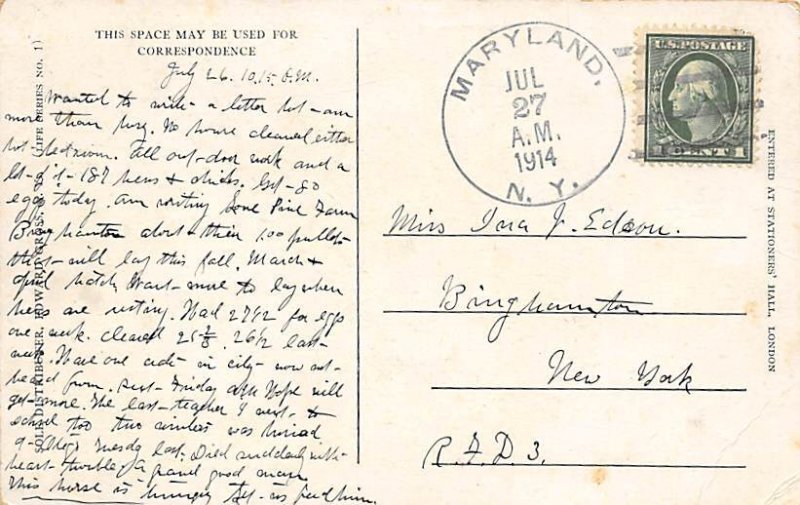 THIS SPACE MAY BE USED FOR
CORRESPONDENCE
July 26. 10.15 P.M.
Wanted to write a letter but am
more than busy. No house cleaned either
but bedroom. All out-door work and a
lot of it - 187 hens & chicks. Get 80
eggs today. Am writing Lone Pine Farm
Binghamton about their 100 pullets
that will lay this fall. March &
April hatch. Want more to lay when
hens are resting. Had 27½ for eggs
one week. cleared 25 26½ last
week. Have one in city - now not
heard from. Friday Hope will
get more. The last teacher I went to
school to two winters was buried
Tuesday last. Died suddenly with
heart trouble. A grand good man.
This horse is hungry. Let us feed him.
SOLE DISTRIBUTER, HOWARD GROSS,
(LIFE SERIES NO. 1)
MARYLAND,
JUL
27
A.M.
1914
N. Y.
U.S. POSTAGE
1 CENT 1
Miss Ina J. Edson.
Binghamton
New York
R.F.D 3.
ENTERED AT STATIONERS' HALL, LONDON